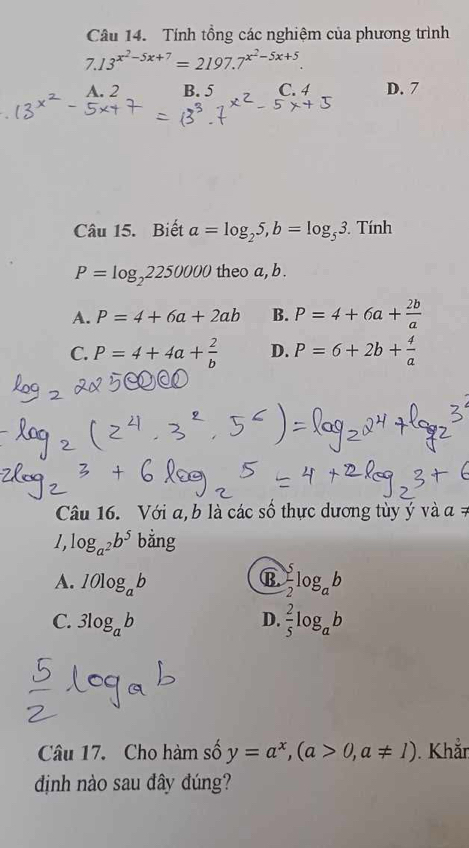 Câu 14. Tính tổng các nghiệm của phương trình
7.13^{x^2-5x+7} = 2197.7^{x^2-5x+5}.
A. 2 B. 5 C. 4 D. 7
. 13^{x^2 - 5x+7} = 13^3 . 7^{x^2 - 5x+5}
Câu 15. Biết a = log_2 5, b = log_5 3. Tính
P = log_2 2250000 theo a, b.
A. P = 4 + 6a + 2ab B. P = 4 + 6a + \frac{2b}{a}
C. P = 4 + 4a + \frac{2}{b} D. P = 6 + 2b + \frac{4}{a}
log_2 2250000
- log_2 (2^4 . 3^2 . 5^6) = log_2 2^4 + log_2 3^2
2log_2 3 + 6 log_2 5 = 4 + 2log_2 3 + 6
Câu 16. Với a, b là các số thực dương tùy ý và a ≠
1, log_{a^2} b^5 bằng
A. 10log_a b B. \frac{5}{2}log_a b
C. 3log_a b D. \frac{2}{5}log_a b
\frac{5}{2} log_a b
Câu 17. Cho hàm số y = a^x, (a > 0, a ≠ 1). Khẳn
định nào sau đây đúng?